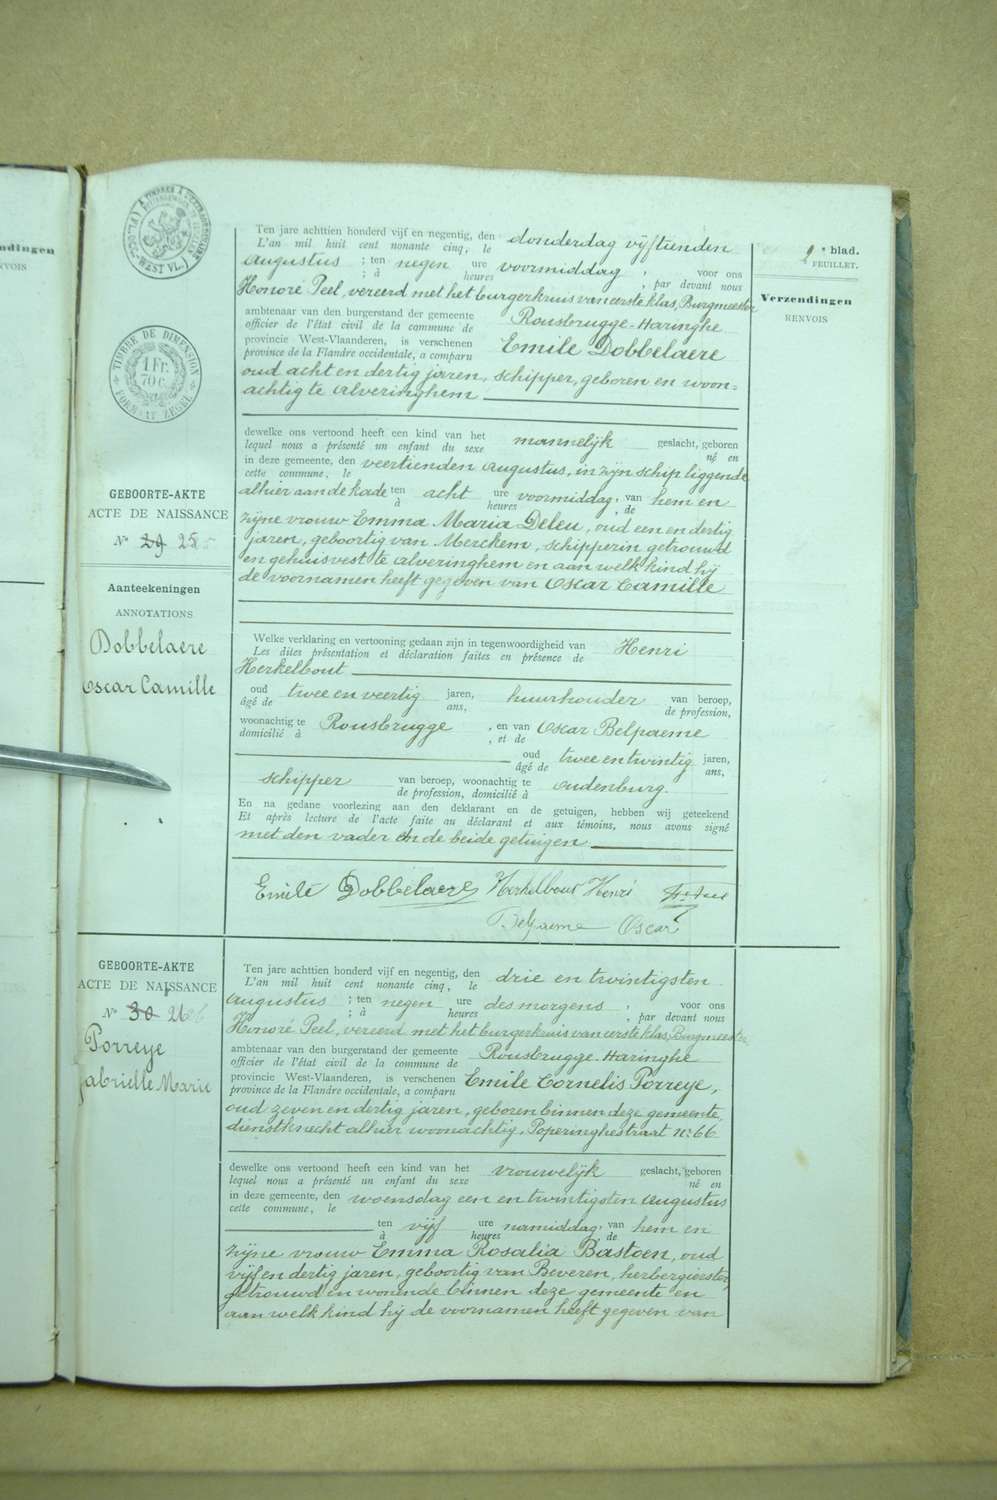 ndingen
NVOIS
TIMBRE DE DIMENSION
1 Fr.
70 c.
FORMAAT ZEGEL
WEST VL.
9e blad.
FEUILLET.
Verzendingen
RENVOIS
GEBOORTE-AKTE
ACTE DE NAISSANCE
No 29 25
Aanteekeningen
ANNOTATIONS
Dobbelaere
Oscar Camille
Ten jare achttien honderd vijf en negentig, den donderdag vijftienden
L'an mil huit cent nonante cinq, le
Augustus ; ten negen ure voormiddag , voor ons
; à heures , par devant nous
Honoré Peel, vereerd met het burgerkruis van eerste klas, Burgmeester
ambtenaar van den burgerstand der gemeente Rousbrugge-Haringhe
officier de l'état civil de la commune de
provincie West-Vlaanderen, is verschenen Emile Dobbelaere
province de la Flandre occidentale, a comparu
oud acht en dertig jaren, schipper, geboren en woon=
achtig te Alveringhem
dewelke ons vertoond heeft een kind van het mannelijk geslacht, geboren
lequel nous a présenté un enfant du sexe né en
in deze gemeente, den veertienden Augustus, in zijn schip liggende
cette commune, le
alhier aan de kade ten acht ure voormiddag, van hem en
à heures de
zijne vrouw Emma Maria Deleu, oud een en dertig
jaren, geboortig van Merckem, schipperin getrouwd
en gehuisvest te Alveringhem en aan welk kind hij
de voornamen heeft gegeven van Oscar Camille
Welke verklaring en vertooning gedaan zijn in tegenwoordigheid van Henri
Les dites présentation et déclaration faites en présence de
Herkelbout
oud twee en veertig jaren, huurhouder van beroep,
âgé de ans, de profession,
woonachtig te Rousbrugge , en van Oscar Belpaeme
domicilié à , et de
oud twee en twintig jaren,
âgé de ans,
schipper van beroep, woonachtig te Oudenburg.
de profession, domicilié à
En na gedane voorlezing aan den deklarant en de getuigen, hebben wij geteekend
Et après lecture de l'acte faite au déclarant et aux témoins, nous avons signé
met den vader en de beide getuigen
Emile Dobbelaere Herkelbout Henri
Belpaeme Oscar
GEBOORTE-AKTE
ACTE DE NAISSANCE
No 30 26
Porreye
Gabrielle Marie
Ten jare achttien honderd vijf en negentig, den drie en twintigsten
L'an mil huit cent nonante cinq, le
Augustus ; ten negen ure des morgens , voor ons
; à heures , par devant nous
Honoré Peel, vereerd met het burgerkruis van eerste klas, Burgmeester
ambtenaar van den burgerstand der gemeente Rousbrugge-Haringhe
officier de l'état civil de la commune de
provincie West-Vlaanderen, is verschenen Emile Cornelis Porreye,
province de la Flandre occidentale, a comparu
oud zeven en dertig jaren, geboren binnen deze gemeente,
dienstknecht alhier woonachtig, Poperinghestraat No 66
dewelke ons vertoond heeft een kind van het vrouwelijk geslacht, geboren
lequel nous a présenté un enfant du sexe né en
in deze gemeente, den woensdag een en twintigsten Augustus
cette commune, le
ten vijf ure namiddag, van hem en
à heures de
zijne vrouw Emma Rosalia Bastoen, oud
vijf en dertig jaren, geboortig van Beveren, herbergierster,
getrouwd en wonende binnen deze gemeente en
aan welk kind hij de voornamen heeft gegeven van